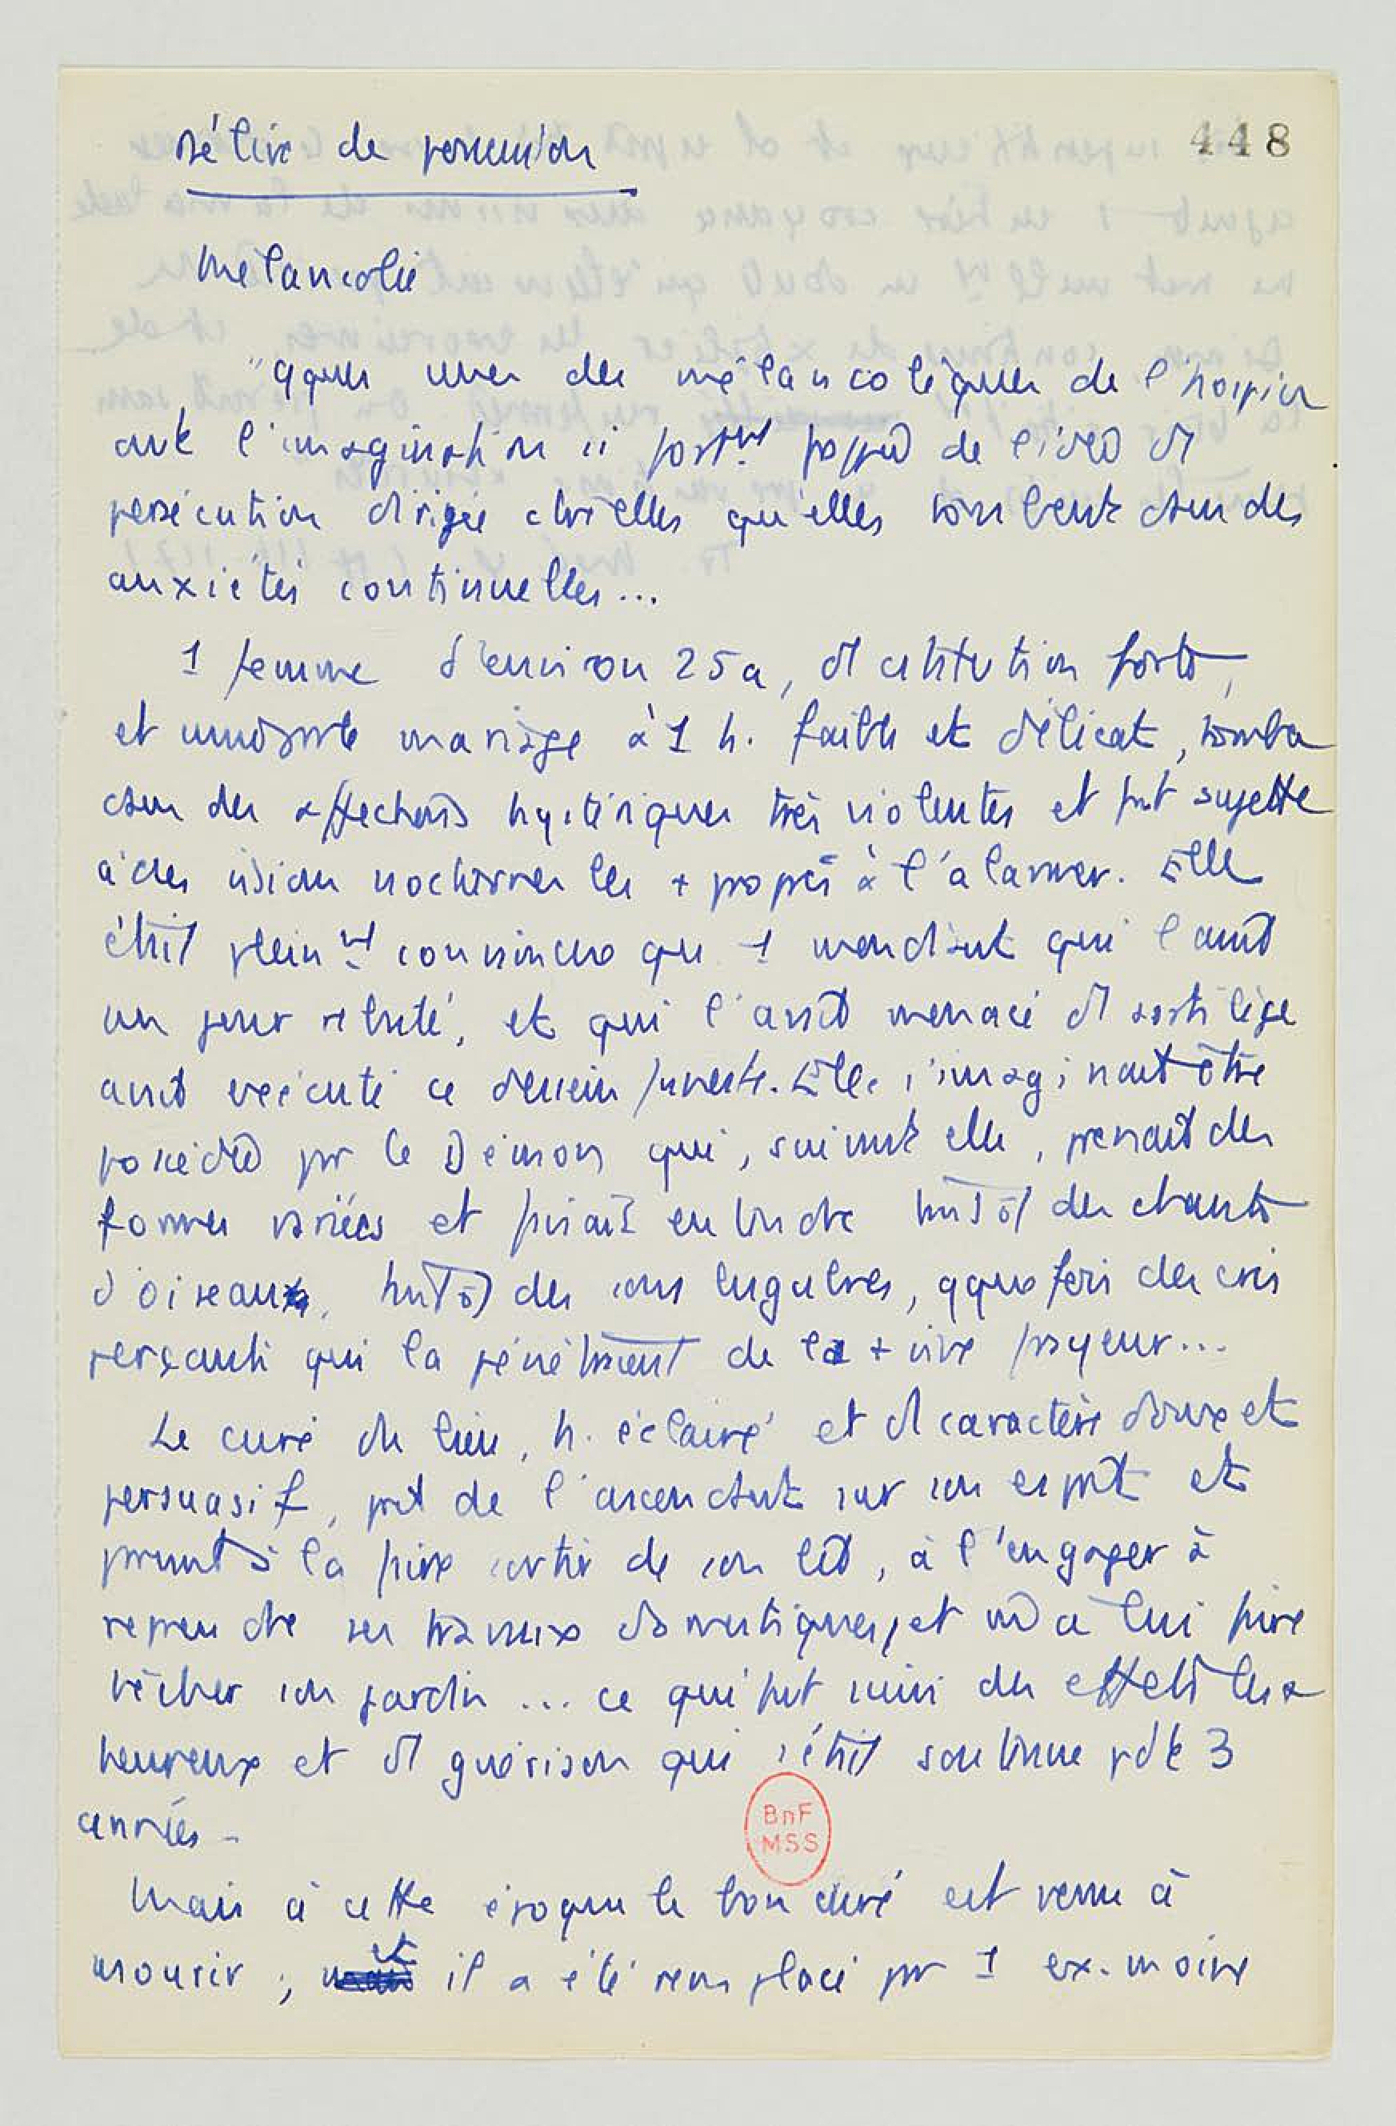 448
Délire de persécution
Mélancolie
"qques unes des mélancoliques de l'hospice
ont l'imagination si fortmt frappée de l'idée d'1
persécution dirigée ctre elles qu'elles tombent dans des
anxiétés continuelles...
1 femme d'environ 25 a, d'1 cstitution forte,
et unie par le mariage à 1 h. faible et délicat, tomba
dans des affections hystériques très violentes et fut sujette
à des visions nocturnes les + propres à l'alarmer. Elle
était pleinmt convaincue que 1 mendiant qui l'avait
un jour rebuté, et qui l'avait menacé d'1 sortilège
avait exécuté ce dessein funeste. Elle s'imaginait être
possédée par le Démon qui, suivant elle, prenait des
formes variées et faisait entendre tantôt des chants
d'oiseaux, tantôt des sons lugubres, qquefois des cris
perçants qui la pénétraient de la + vive frayeur...
Le curé du lieu, h. éclairé et d'1 caractère doux et
persuasif, prit de l'ascendant sur son esprit et
parvint à la faire sortir de son lit, à l'engager à
reprendre ses travaux domestiques, et m à lui faire
bêcher son jardin ... ce qui fut suivi des effets les +
heureux et d'1 guérison qui s'était soutenue pdt 3
années -
Mais à cette époque le bon curé est venu à
mourir ; et il a été remplacé par 1 ex-moine
BnF
MSS